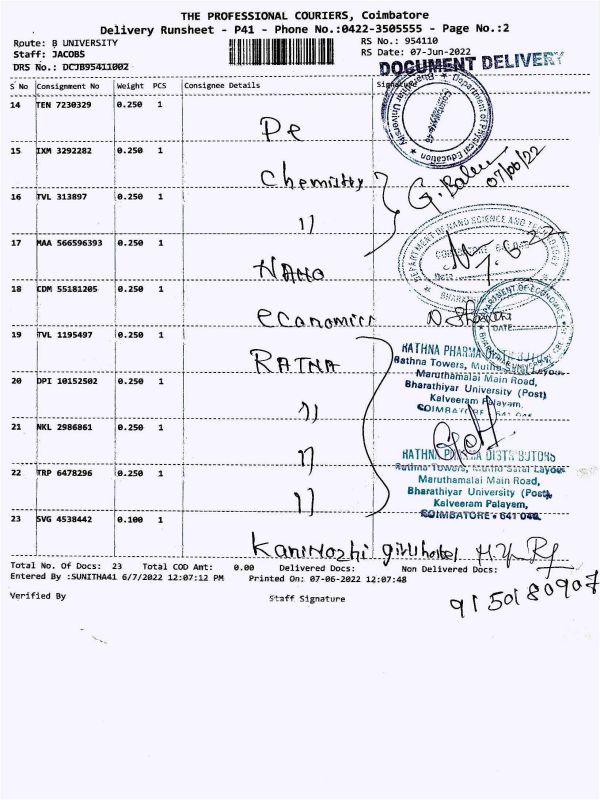 THE PROFESSIONAL COURIERS, Coimbatore
Delivery Runsheet - P41 - Phone No.:0422-3505555 - Page No.:2
Route: B UNIVERSITY
RS No.: 954110
Staff: JACOBS
RS Date: 07-Jun-2022
DRS No.: DCJB95411002
DOCUMENT DELIVERY
S No Consignment No Weight PCS Consignee Details Signature
14 TEN 7230329 0.250 1 Pe
Department of Physical Education
15 IXM 3292282 0.250 1 Chemistry G. Balu 07/06/22
16 TVL 313897 0.250 1 11
DEPARTMENT OF NANO SCIENCE AND TECHNOLOGY
17 MAA 566596393 0.250 1 NANO
18 CDM 55181205 0.250 1 economics
DEPARTMENT OF ECONOMICS
DATE
19 TVL 1195497 0.250 1 RATNA
RATHNA PHARMA DISTRIBUTORS
Rathna Towers, Muthu
Maruthamalai Main Road,
Bharathiyar University (Post)
Kalveeram Palayam,
COIMBATORE
20 DPI 10152502 0.250 1 11
21 NKL 2986861 0.250 1 11
RATHNA PHARMA DISTRIBUTORS
Rathna Towers, Layou
22 TRP 6478296 0.250 1 11
Maruthamalai Main Road,
Bharathiyar University (Post),
Kalveeram Palayem,
COIMBATORE - 641 046.
23 SVG 4538442 0.100 1 Kanimozhi girls hostel
Total No. Of Docs: 23 Total COD Amt: 0.00 Delivered Docs: Non Delivered Docs:
Entered By :SUNITHA41 6/7/2022 12:07:12 PM Printed On: 07-06-2022 12:07:48
Verified By Staff Signature
9150180907